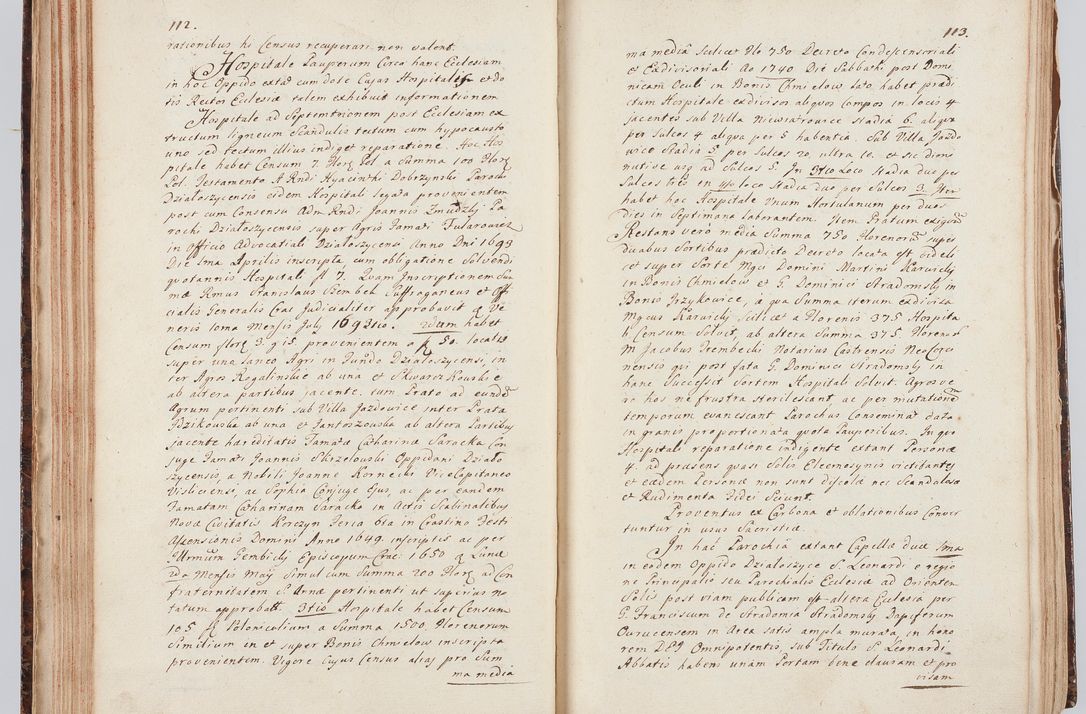 112.
rationibus hi Census recuperari non valent.
Hospitale Pauperum Circa hanc Ecclesiam
in hoc Oppido extat cum dote Cujus Hospitalis et do
tis Rector Ecclesiæ talem exhibuit informationem
Hospitale ad Septemtrionem post Ecclesiam ex
tructum ligneum Scandulis tectum cum hypocausto
uno sed tectum illius indiget reparatione. Hoc Hos
pitale habet Censum 7. Flor Pol a Summa 100 Flor
Pol. Testamento A Rndi Hyacinthi Dobrzynski Parochi
Działoszycensis eidem Hospitali legata provenientem
post cum Consensu Adm Rndi Joannis Zmudzky Pa
rochi Działoszycensis super Agris Famati Tularowicz
in Officio Advocatiali Działoszycensi Anno Dni 1693
Die 1ma Aprilis inscripta cum obligatione Solvendi
quotannis Hospitali fl 7. Quam Inscriptionem Sum
mæ Rmus Stanislaus Szembek Suffraganeus et Offi
cialis Generalis Crac Judicialiter approbavit Ve
neris 10ma Mensis July 1693tio. 2dum habet
Censum flor 3 g 15 provenientem a fl 50. locatis
super uno Laneo Agri in Fundo Działoszycensi, in
ter Agros Rogalinskie ab una et Skwarczkouskie
ab altera partibus jacente. cum Prato ad eund
Agrum pertinenti sub Villa Jazdowice inter Prata
Idzikouska ab una et Jantoszouska ab altera Partibus
jacente hæreditatis Famatæ Catharinæ Saracka Con
juge Famati Joannis Skrzelouski Oppidani Działo
szycensis, a Nobili Joanne Kornecki Vice Capitaneo
Visliciensi, ac Sophia Conjuge Ejus, ac per eandem
Famatam Catharinam Saracko in Actis Scabinalibus
Novæ Civitatis Korczyn Feria 6ta in Crastino Festi
Ascensionis Domini Anno 1649. inscriptis ac per
Illrmum Gembicky Episcopum Crac: 1650 Lunæ
2da Mensis Maÿ Simul cum Summa 200 Flor ad Con
fraternitatem S. Annæ pertinenti ut superius no
tatum approbatt. 3tio Hospitale habet Censum
105 fl Polonicalium a Summa 1500. Florenorum
Similium in et super Bonis Chmielow inscripta
provenientem. Vigore Cujus Census alias pro Sum
ma media
113.
ma media Scilicet No 750 Decreto Condescensoriali
et Exdivisoriali Ao 1740 Die Sabbathi post Domi
nicam Oculi in Bonis Chmielow lato habet prædi
ctum Hospitale exdivisos aliquos Campos in locis 4
jacentes sub Villa Niewiatrowice Stadia 6. aliqua
per Sulcos 4 aliqua per 5 habentia. Sub Villa Jazdo
wice Stadia 5 per Sulcos 20 ultra 10. et sic dimi
nutive usq ad Sulcos 5. In 3tio Loco Stadia duo per
Sulcos tres en 4to loco Stadia duo per Sulcos 3. Item
habet hoc Hospitale Unum Hortulanum per duos
dies in Septimana Laborantem. Item Pratum exiguum
Restans verò media Summa 750 Florenorum super
duabus Sortibus prædicto Decreto locata est videli
cet super Sorte Mgci Domini Martini Karwicki
in Bonis Chmielow et G. Dominici Stradomsky in
Bonis Jrzykowice, à qua Summa iterum exdivisa
Mgcus Karwicky Scilicet a Florenis 375 Hospita
li Censum Solvit, ab altera Summa 375. Florenorum
M Jacobus Trembecki Notarius Castrensis NeoCorci
nensis qui post fata G. Dominici Stradomsky in
hanc Successit Sortem Hospitali Solvit. Agros ve
ro hos ne frustra Sterilescant, ac per mutationem
temporum evanescant Parochus Conseminat data
in granis proportionata quota Pauperibus. In quo
Hospitali reparatione indigente extant Personæ
4 ad præsens quasi Solis Eleemosynis victitantes
et eædem Personæ non sunt discolæ nec Scandalosæ
et Rudimenta Fidei Sciunt.
Proventus ex Carbona et oblationibus Conver
tuntur in usus Sacristiæ.
In hac Parochia extant Capellæ duæ 1ma
in eodem Oppido Działoszyce S. Leonardi e regio
ne Principalis seu Parochialis Ecclesiæ ad Orientem
Solis post viam publicam est altera Ecclesia per
G. Franciscum de Stradomia Stradomsky Dapiferum
Owrucensem in Area satis ampla murata, in hono
rem DEI Omnipotentis, sub Titulo S. Leonardi
Abbatis habens unam Portam bene clausam et pro
visam